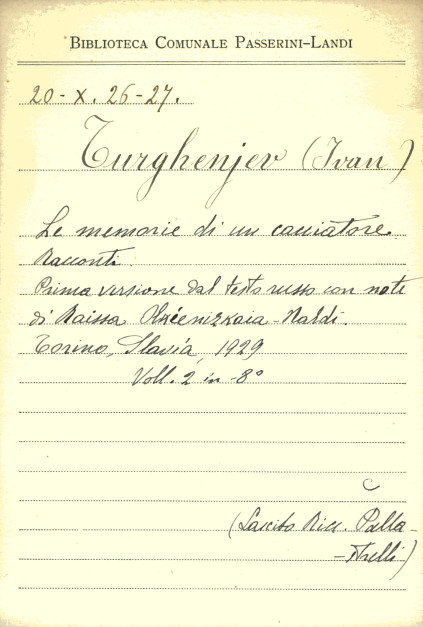 BIBLIOTECA COMUNALE PASSERINI-LANDI
20-X. 26-27.
Turghenjev (Ivan)
Le memorie di un cacciatore.
Racconti
Prima versione dal testo russo con note
di Raissa Olkienizkaia-Naldi.
Torino, Slavia, 1929
Voll. 2 in -8°
C
(Lascito Ricc. Palla-
-strelli)